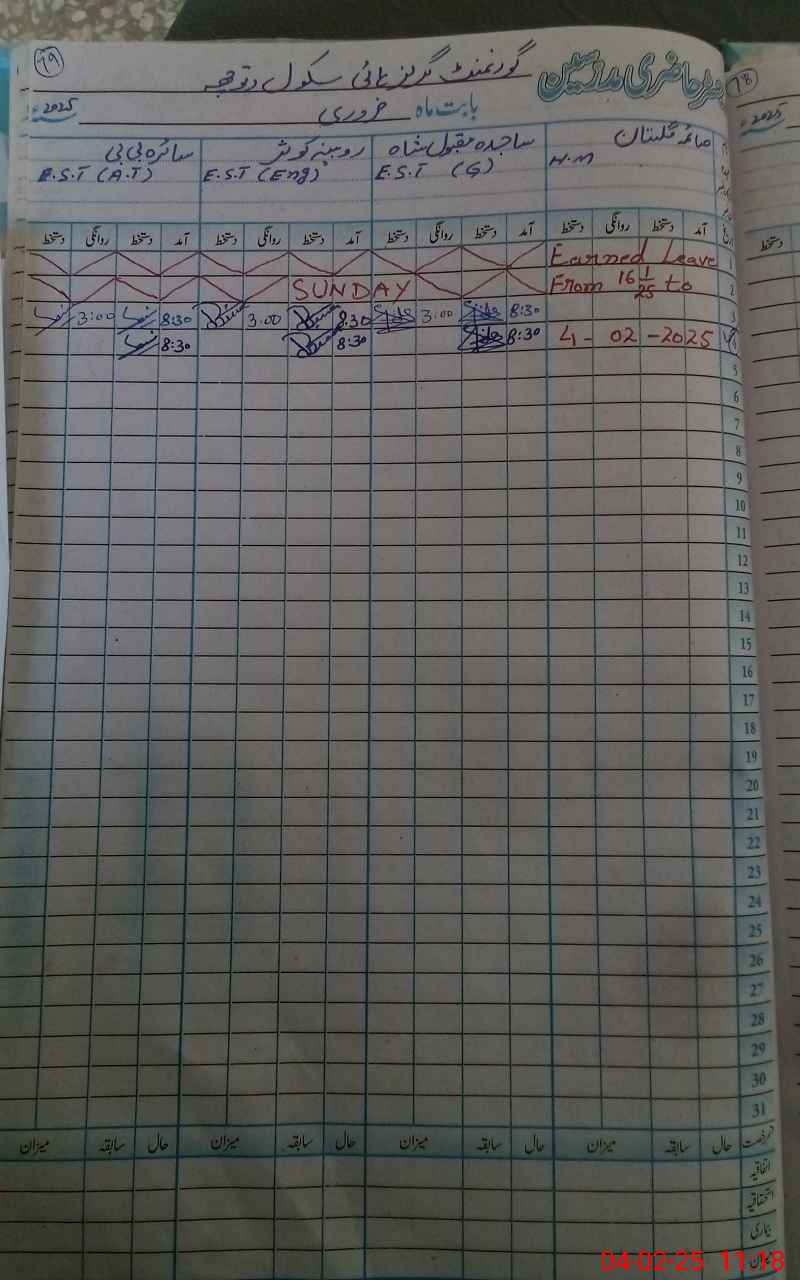 79
رجسٹر حاضری مدرسین گورنمنٹ گرلز ہائی سکول رتوچھہ
78
بابت ماہ فروری 2025ء
صائمہ گلستان ساجدہ مقبول شاہ روبینہ کوثر سائرہ بی بی
H.M E.S.T (G) E.S.T (Eng) E.S.T (A.T)
آمد دستخط روانگی دستخط آمد دستخط روانگی دستخط آمد دستخط روانگی دستخط آمد دستخط روانگی دستخط
دستخط
1 Earned Leave
2 From 16 1/25 to SUNDAY
3 8:30 3:00 8:30 3.00 8:30 3:00
4 4 - 02 - 2025 8:30 8:30 8:30
5
6
7
8
9
10
11
12
13
14
15
16
17
18
19
20
21
22
23
24
25
26
27
28
29
30
31
رخصت حال سابقہ میزان حال سابقہ میزان حال سابقہ میزان حال سابقہ میزان
اتفاقیہ
استحقاقیہ
بیماری
میزان
04-02-25 11:18